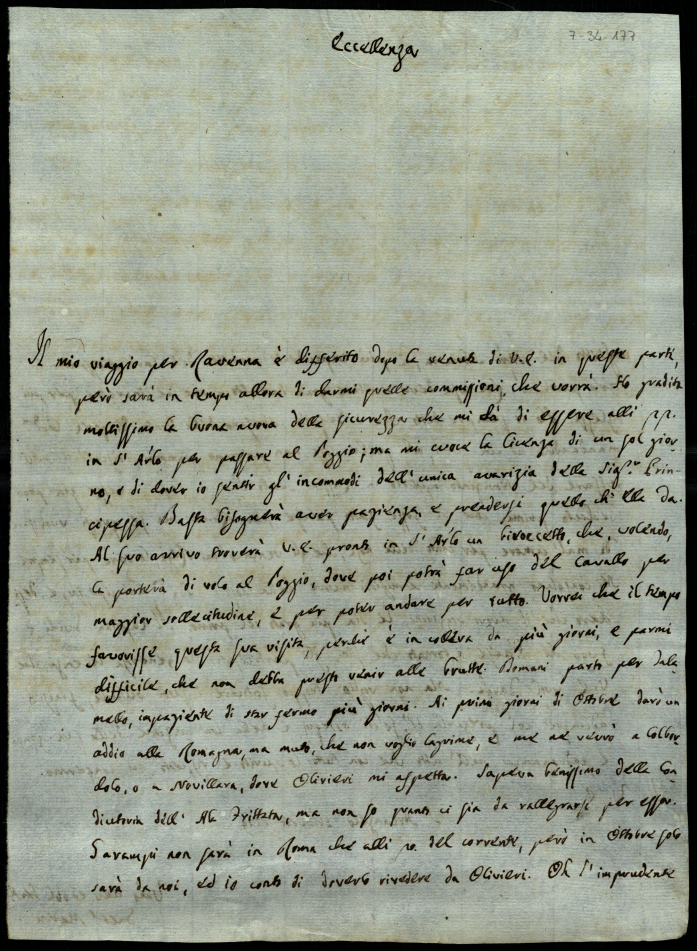 7-34-177
Eccellenza
Il mio viaggio per Ravenna è differito dopo la venuta di V.E. in queste parti,
però sarà in tempo allora di darmi quelle commissioni, che vorrà. Ho gradita
moltissimo la buona nuova della sicurezza che mi dà di essere alli
in S. Arc.lo per passare al Poggio; ma mi cuoce la licenza di un sol gior-
no, e di dover io sentir gl' incommodi dell' unica avarizia della Sig.ra Prin-
cipessa. Basta bisognerà aver pazienza, e prendersi quello ch' ella dà.
Al suo arrivo troverà V.E. pronto in S. Arc.lo un biroccetto, che, volendo,
la porterà di volo al Poggio, dove poi potrà far uso del Cavallo per
maggior sollecitudine, e per poter andare per tutto. Vorrei che il tempo
favorisse questa sua visita, perchè è in collera da più giorni, e parmi
difficile, che non debba presto venir alle brutte. Domani parto per Tala-
mello, impaziente di star fermo più giorni. Ai primi giorni di Ottobre darò un
addio alla Romagna, ma muto, che non voglio lagrime, e me ne verrò a Colbor-
dolo, o a Novillara, dove Olivieri mi aspetta. Sapeva benissimo della Coa-
diutoria dell' Ab. ma non so quanto ci sia da rallegrarsi per esso.
Garampi non sarà in Roma che alli 10. del corrente, però in Ottobre solo
sarà da noi, ed io conto di doverlo rivedere da Olivieri. Oh l' imprudente